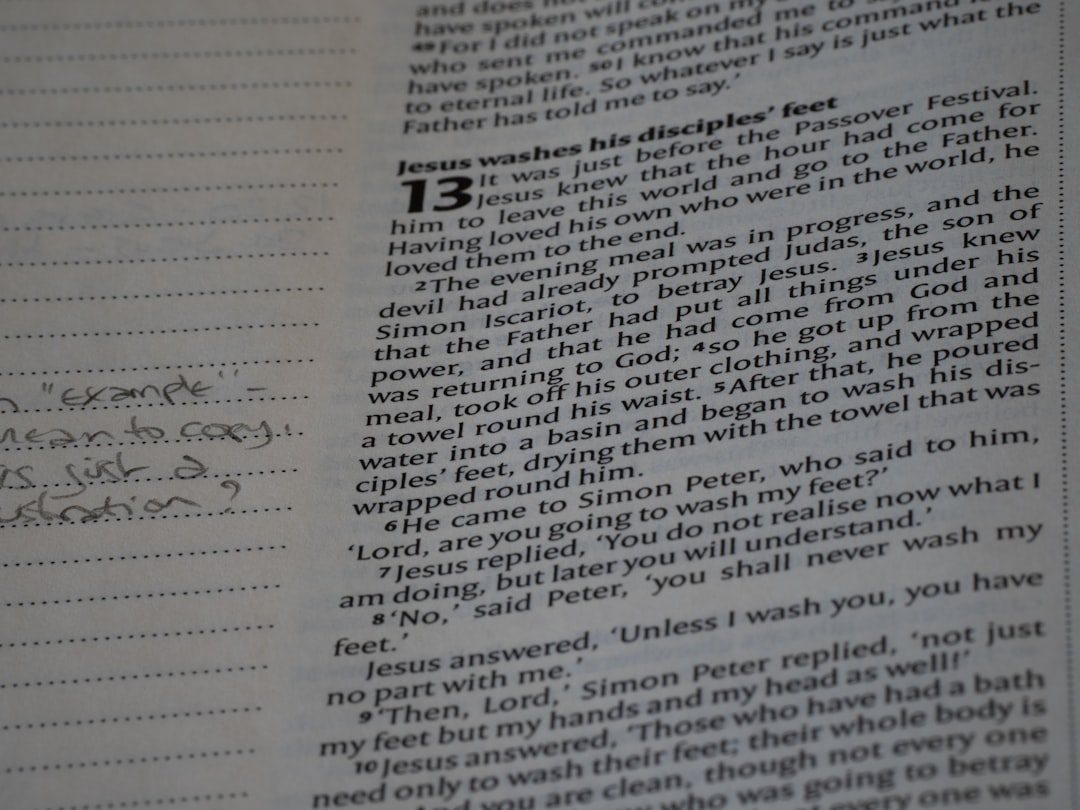 "Example" -
mean to copy.
is just a
ustration?
and does not
have spoken will
49 For I did not speak on my
who sent me commanded me to
have spoken. 50 I know that his command
to eternal life. So whatever I say is just what the
Father has told me to say.'
Jesus washes his disciples' feet
13 It was just before the Passover Festival.
Jesus knew that the hour had come for
him to leave this world and go to the Father.
Having loved his own who were in the world, he
loved them to the end.
2 The evening meal was in progress, and the
devil had already prompted Judas, the son of
Simon Iscariot, to betray Jesus. 3 Jesus knew
that the Father had put all things under his
power, and that he had come from God and
was returning to God; 4 so he got up from the
meal, took off his outer clothing, and wrapped
a towel round his waist. 5 After that, he poured
water into a basin and began to wash his dis-
ciples' feet, drying them with the towel that was
wrapped round him.
6 He came to Simon Peter, who said to him,
'Lord, are you going to wash my feet?'
7 Jesus replied, 'You do not realise now what I
am doing, but later you will understand.'
8 'No,' said Peter, 'you shall never wash my
feet.'
Jesus answered, 'Unless I wash you, you have
no part with me.'
9 'Then, Lord,' Simon Peter replied, 'not just
my feet but my hands and my head as well!'
10 Jesus answered, 'Those who have had a bath
need only to wash their feet; their whole body is
you are clean, though not every one
who was going to betray
every one was